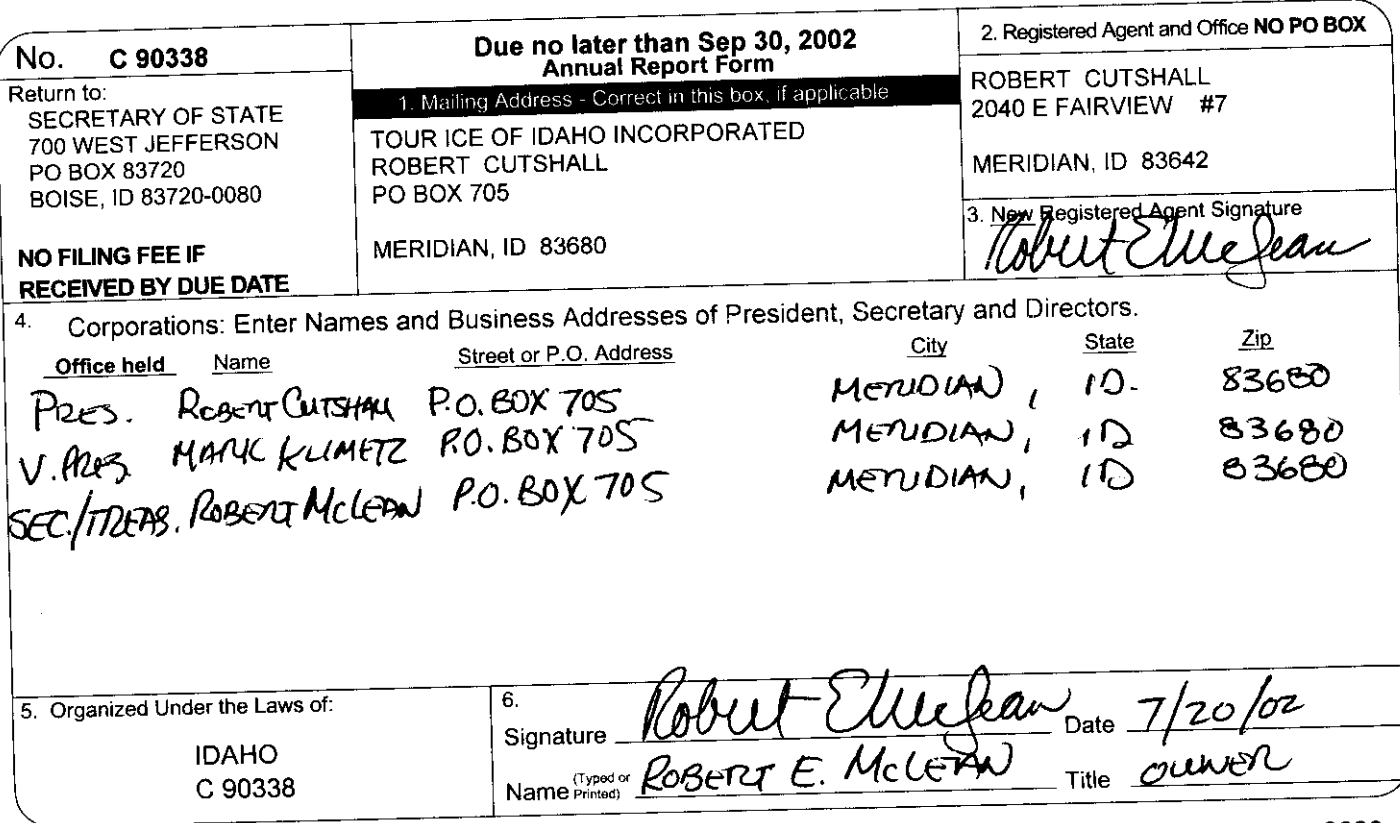 No. C 90338
Return to:
SECRETARY OF STATE
700 WEST JEFFERSON
PO BOX 83720
BOISE, ID 83720-0080
NO FILING FEE IF
RECEIVED BY DUE DATE
Due no later than Sep 30, 2002
Annual Report Form
1. Mailing Address - Correct in this box, if applicable
TOUR ICE OF IDAHO INCORPORATED
ROBERT CUTSHALL
PO BOX 705
MERIDIAN, ID 83680
2. Registered Agent and Office NO PO BOX
ROBERT CUTSHALL
2040 E FAIRVIEW #7
MERIDIAN, ID 83642
3. New Registered Agent Signature
Robert E McLean
4. Corporations: Enter Names and Business Addresses of President, Secretary and Directors.
Office held Name Street or P.O. Address City State Zip
PRES. ROBERT CUTSHALL P.O. BOX 705 MERIDIAN, ID. 83680
V. PRES. MARK KLIMETZ P.O. BOX 705 MERIDIAN, ID 83680
SEC./TREAS. ROBERT MCLEAN P.O. BOX 705 MERIDIAN, ID 83680
5. Organized Under the Laws of:
IDAHO
C 90338
6.
Signature Robert E McLean Date 7/20/02
Name (Typed or Printed) ROBERT E. MCLEAN Title OWNER